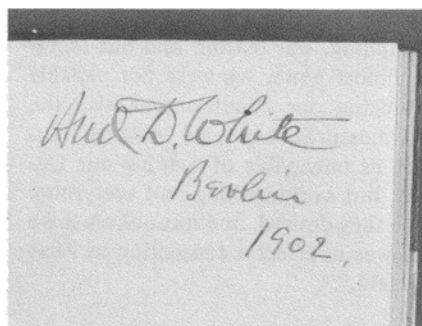 And. D. White
Berlin
1902.